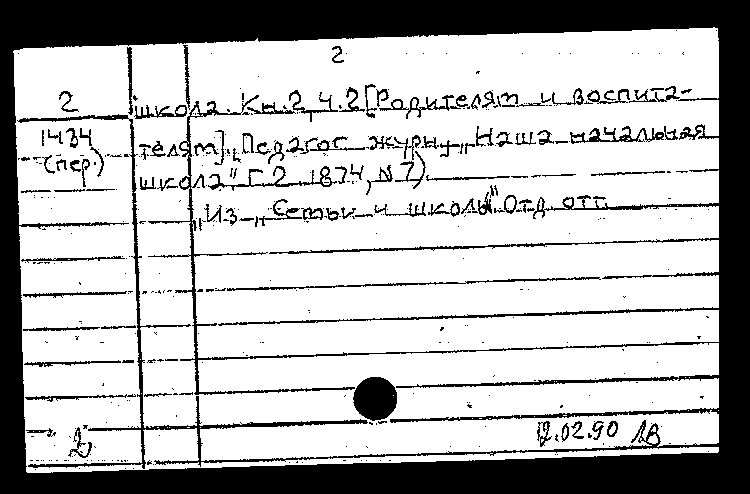 2
2
школа. Кн.2, ч.2 [Родителям и воспита-
1434
телям]. „Педагог. журн., „Наша начальная
(пер.)
школа", Г.2. 1874, N 7).
„Из „Семьи и школы" Отд. отт.
2
12.02.90 ЛВ